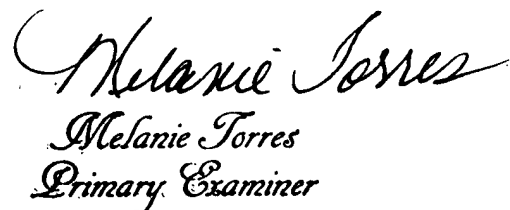 Melanie Torres
Melanie Torres
Primary Examiner